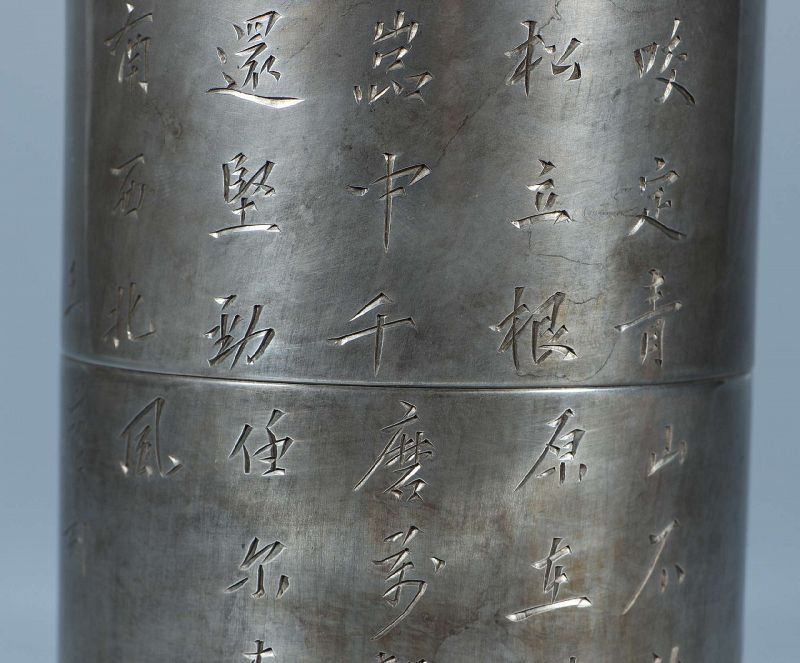 咬定青山不
松立根原在
嵒中千磨萬
還堅勁任尔
南西北風